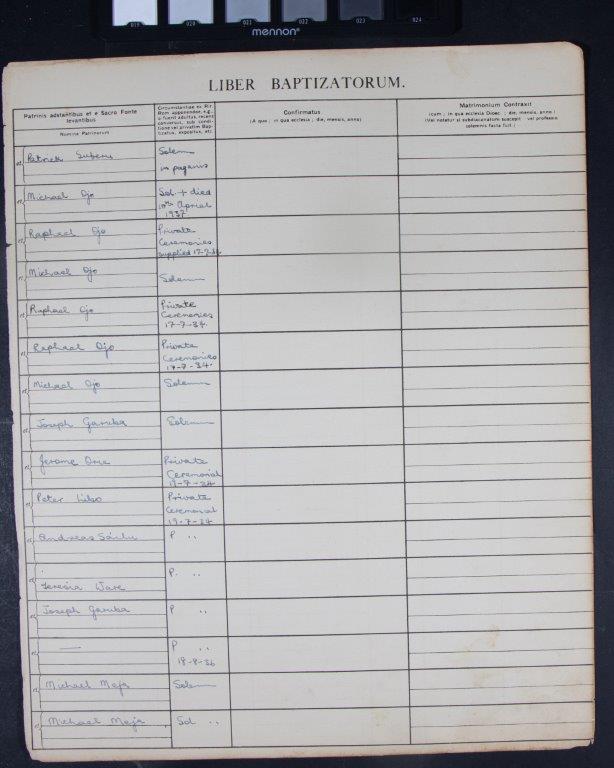 019 020 021 022 023 024
mennon
LIBER BAPTIZATORUM.
Patrinis adstantibus et e Sacro Fonte
levantibus
Nomina Patrinorum
Circumstantiae ex Rit.
Rom. apponendae, e.g.,
si fuerit adultus, recens
conversus, sub condi-
tione vel privatim Bap-
tizatus, expositus, etc.
Confirmatus
(A quo; in qua ecclesia; die, mensis, anno)
Matrimonium Contraxit
(cum; in qua ecclesia Dioec.; die, mensis, anno)
(Vel notetur si subdiaconatum suscepit vel professio
solemnis facta fuit)
et Patrick
Solemn
in paganis
et Michael Ojo
Sol + died
10th April
1937
et Raphael Ojo
Private
Ceremonies
supplied 17-7-34
et Michael Ojo
Solemn
et Raphael Ojo
Private
Ceremonies
17-7-34
et Raphael Ojo
Private
Ceremonies
17-7-34
et Michael Ojo
Solemn
et Joseph Garuba
Solemn
et Jerome
Private
Ceremonial
19-7-34
et Peter
Private
Ceremonial
19-7-34
et Andreas
P "
et Teresia Ware
P. "
et Joseph Garuba
P "
et —
P "
18-8-36
et Michael Maja
Solemn
et Michael Maja
Sol "